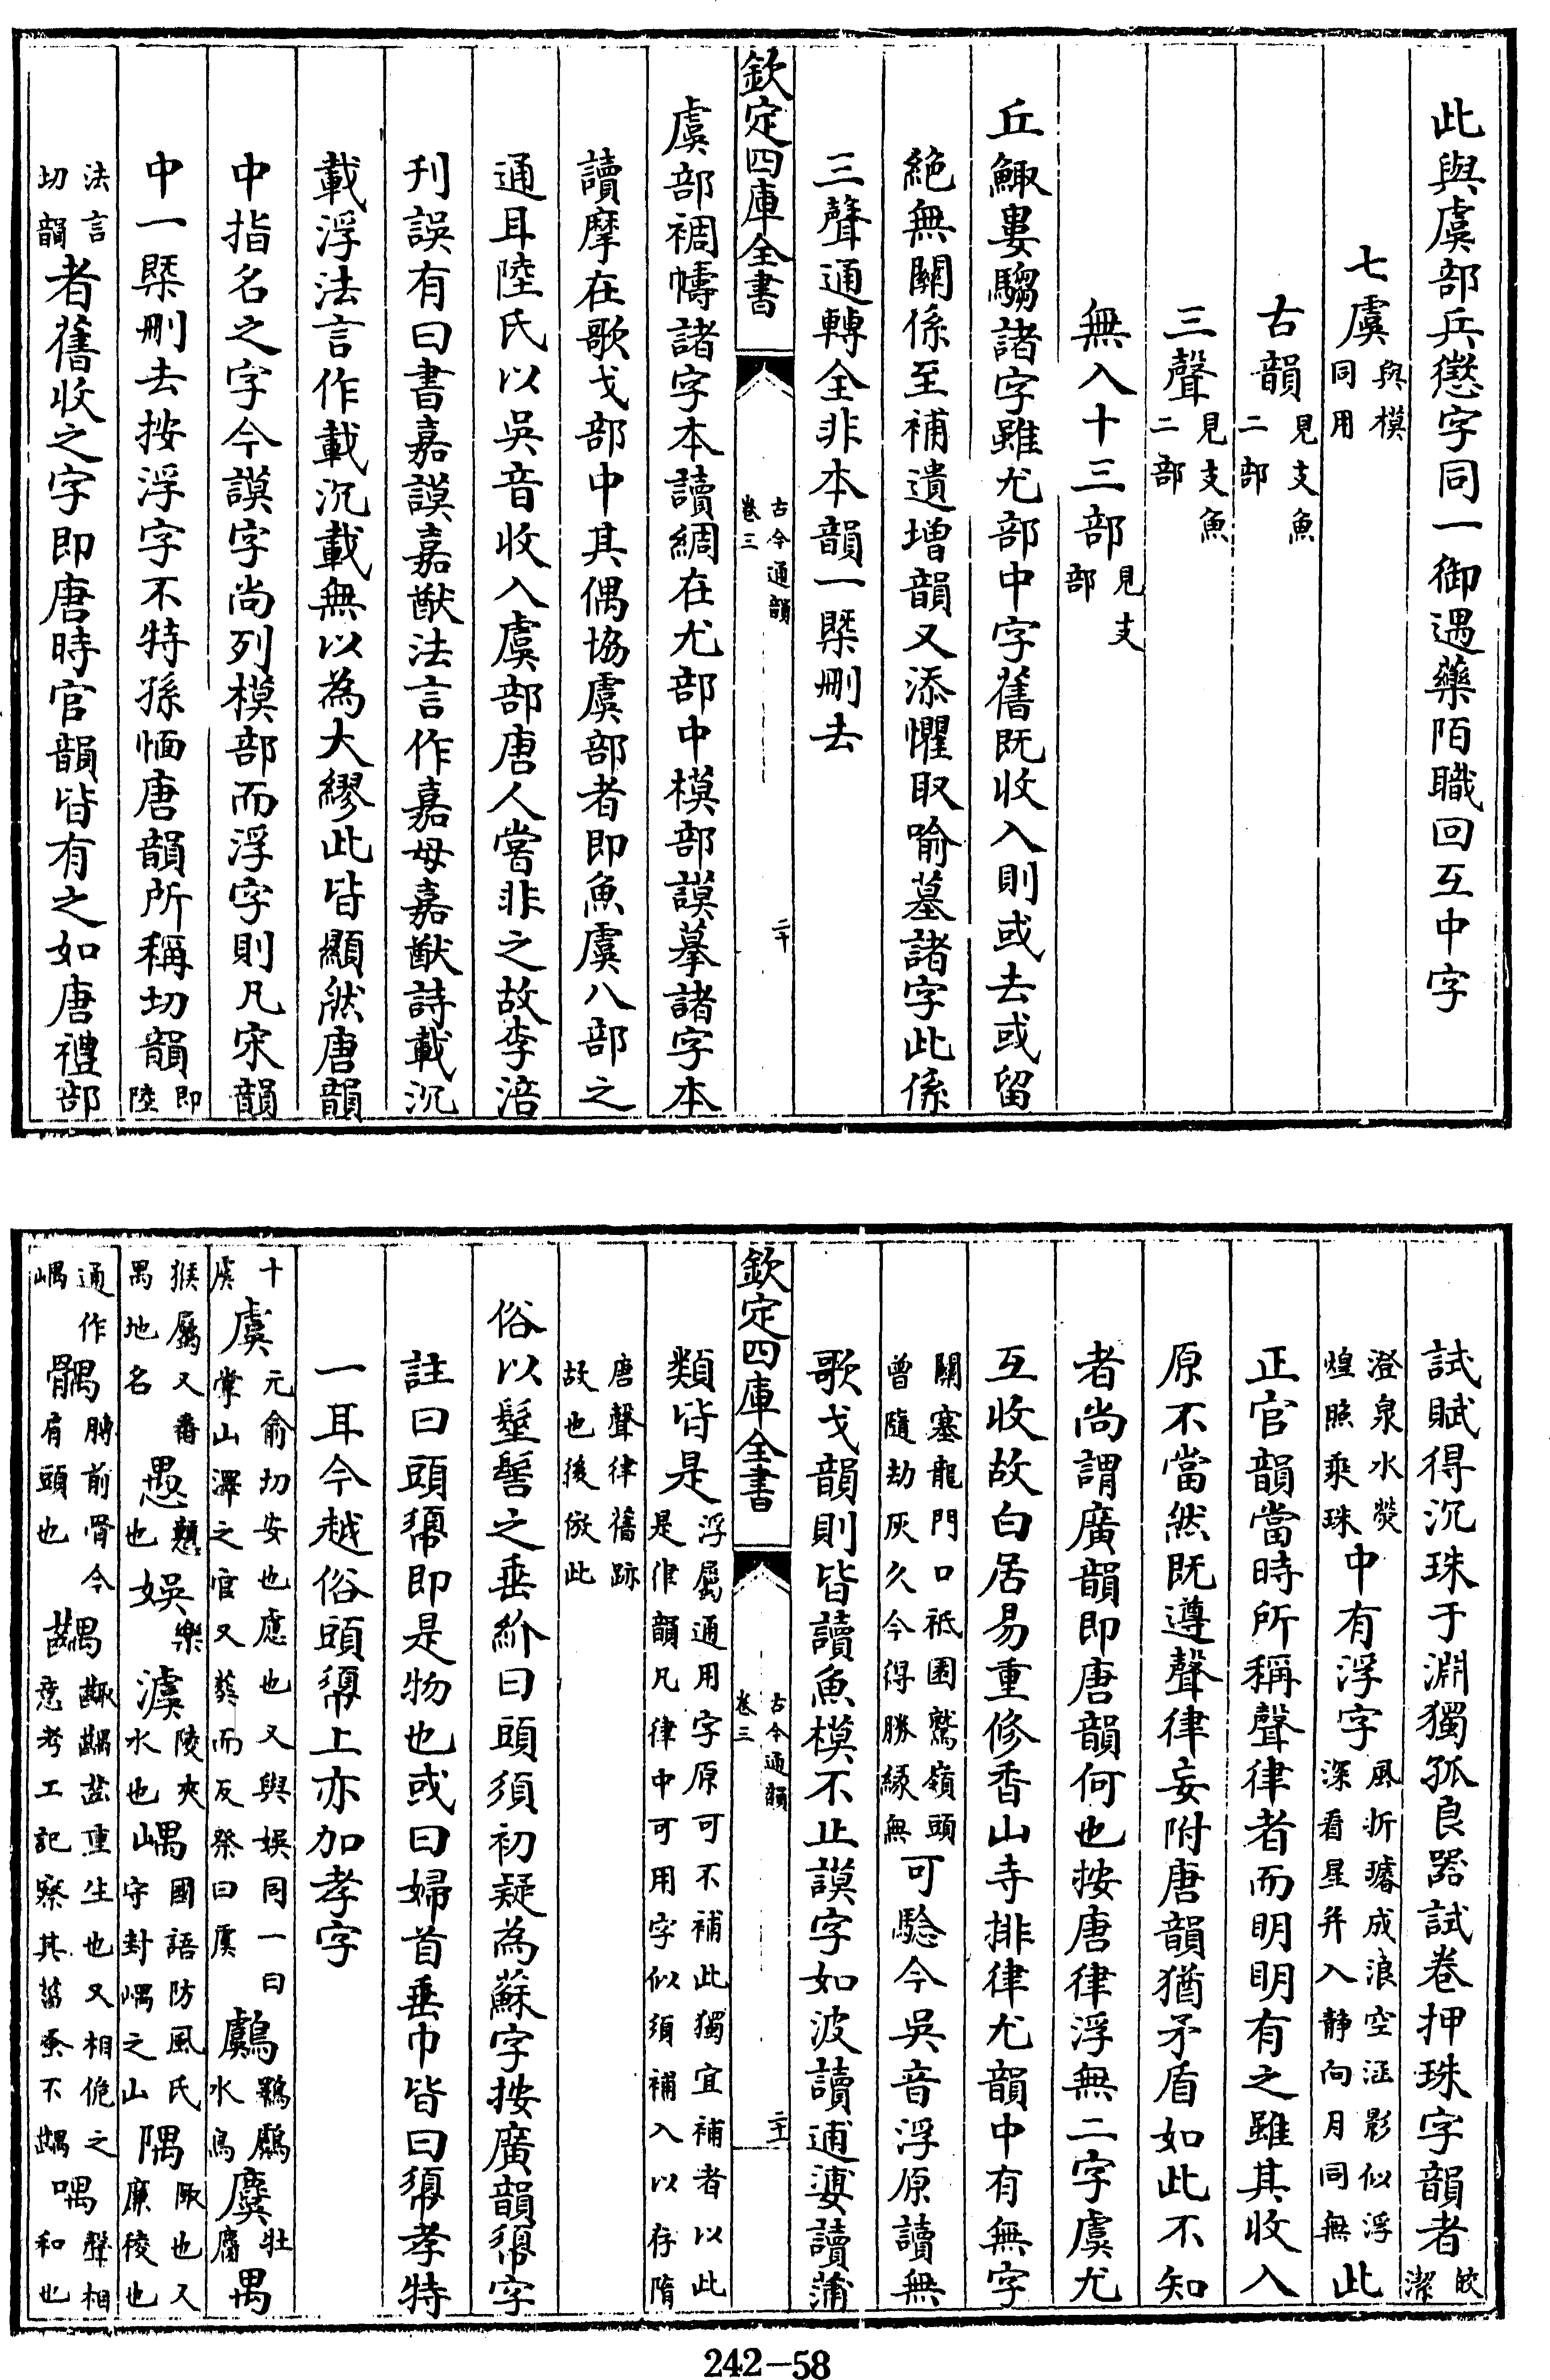 此與虞部兵懲字同一御遇藥陌職回互中字
七虞與模同用
古韻見支魚二部
三聲見支魚二部
無入十三部見支部
丘鯫婁騶諸字雖尤部中字舊既收入則或去或留
絶無關係至補遺增韻又添懼取喻墓諸字此係
三聲通轉全非本韻一槩刪去
欽定四庫全書
古今通韻
卷三
二十
虞部裯幬諸字本讀綢在尤部中模部謨摹諸字本
讀摩在歌戈部中其偶協虞部者即魚虞八部之
通耳陸氏以吳音收入虞部唐人嘗非之故李涪
刋誤有曰書嘉謨嘉猷法言作嘉母嘉猷詩載沉
載浮法言作載沉載無以為大繆此皆顯然唐韻
中指名之字今謨字尚列模部而浮字則凡宋韻
中一槩刪去按浮字不特孫愐唐韻所稱切韻即陸
法言切韻者舊收之字即唐時官韻皆有之如唐禮部
試賦得沉珠于淵獨孤良器試卷押珠字韻者皎潔
澄泉水熒煌照乘珠中有浮字風折璿成浪空涵影似浮深看星并入静向月同無此
正官韻當時所稱聲律者而明明有之雖其收入
原不當然既遵聲律妄附唐韻猶矛盾如此不知
者尚謂廣韻即唐韻何也按唐律浮無二字虞尤
互收故白居易重修香山寺排律尤韻中有無字
關塞龍門口祇園鷲嶺頭曾隨劫灰久今得勝緣無可騐今吳音浮原讀無
歌戈韻則皆讀魚模不止謨字如波讀逋婆讀蒲
欽定四庫全書
古今通韻
卷三
二十一
類皆是浮屬通用字原可不補此獨宜補者以此是律韻凡律中可用字似須補入以存隋
唐聲律舊跡故也後倣此
俗以髽髻之垂紒曰頭須初疑為蘇字按廣韻䰅字
註曰頭䰅即是物也或曰婦首垂巾皆曰䰅孝特
一耳今越俗頭䰅上亦加孝字
十虞虞元俞切安也慮也又與娛同一曰掌山澤之官又葬而反祭曰虞鸆鸅鸆水鳥麌牡麕禺
猴屬又番禺地名愚戇也娛樂澞陵夾水也嵎國語防風氏守封嵎之山隅陬也又廉稜也
通作嵎髃膊前骨今肩頭也齵齱齵齒重生也又相佹之意考工記察其菑蚤不齵喁聲相和也
242-58